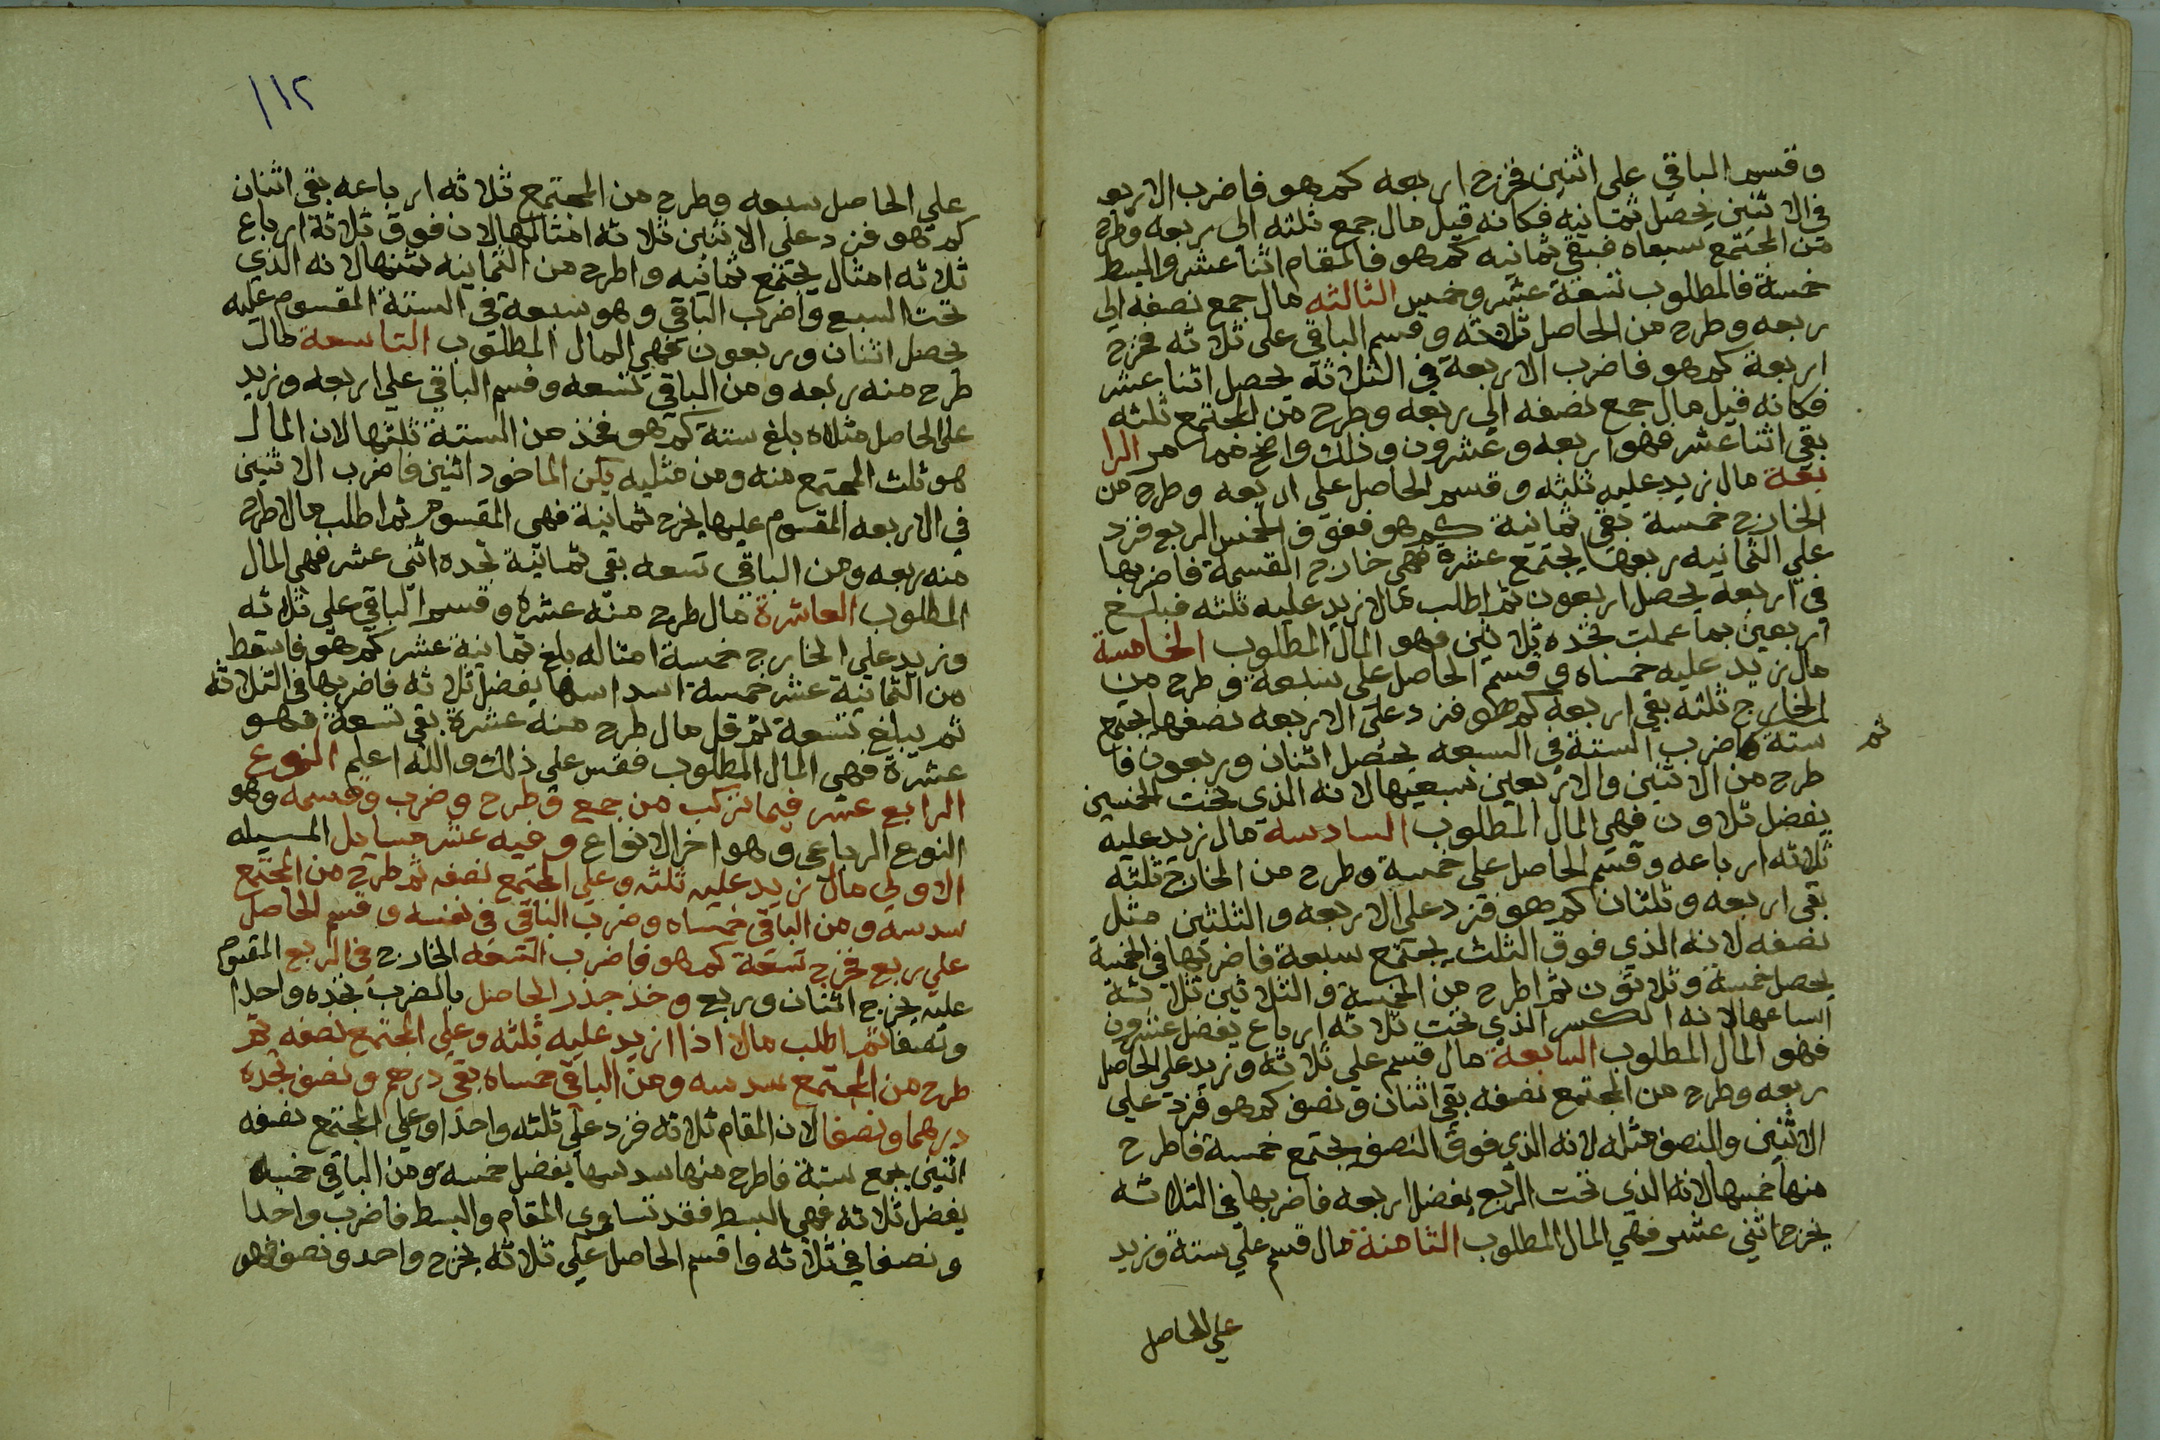 وقسم الباقي على اثنين فخرج اربعه كم هو فاضرب الاربعه
في الاثنين يحصل ثمانيه فكانه قيل مال جمع ثلثه الى ربعه وطرح
من المجتمع سبعاه فبقي ثمانيه كم هو فالمقام اثنا عشر والبسط
خمسة فالمطلوب تسعة عشر وخمس الثالثه مال جمع نصفه الي
ربعه وطرح من الحاصل ثلاثه وقسم الباقي على ثلاثه فخرج
اربعة كم هو فاضرب الاربعة في الثلاثة يحصل اثنا عشر
فكانه قيل مال جمع نصفه الي ربعه وطرح من المجتمع ثلثه
بقي اثنا عشر فهو اربعه وعشرون وذلك واضح مما مر الرا
بعة مال زيد عليه ثلثه وقسم الحاصل على اربعه وطرح من
الخارج خمسة بقي ثمانية كم هو ففوق الخمس الربع فزد
علي الثمانيه ربعها يجتمع عشرة فهي خارج القسمة فاضربها
في اربعه يحصل اربعون ثم اطلب مالا زيد عليه ثلثه فبلغ
اربعين بما عملت تجده ثلاثين فهو المال المطلوب الخامسة
مال زيد عليه خمساه وقسم الحاصل على سبعة وطرح من
الخارج ثلثه بقي اربعة كم هو فزد على الاربعه نصفها يجتمع
ستة فاضرب الستة في السبعه يحصل اثنان وربعون فا
ثم
طرح من الاثنين والاربعين سبعيها لانه الذي تحت الخمسين
يفضل ثلاون فهي المال المطلوب السادسة مال زيد عليه
ثلاثه ارباعه وقسم الحاصل على خمسة وطرح من الخارج ثلثه
بقي اربعه وثلثان كم هو فزد على الاربعه والثلثين مثل
نصفه لانه الذي فوق الثلث يجتمع سبعة فاضربها في الخمسة
يحصل خمسة وثلاثون ثم اطرح من الخمسة والثلاثين ثلاثة
اسباعها لانه الكسر الذي تحت ثلاثه ارباع يفضل عشرون
فهو المال المطلوب السابعة مال قسم علي ثلاثة وزيد علي الحاصل
ربعه وطرح من المجتمع نصفه بقي اثنان ونصف كم هو فزد علي
الاثنين والنصف مثله لانه الذي فوق النصف يجتمع خمسة فاطرح
منها خمسها لانه الذي تحت الربع يفضل اربعه فاضربها في الثلاثه
يخرج اثني عشر فهي المال المطلوب الثامنة مال قسم علي ستة وزيد
علي الحاصل
١١٢
علي الحاصل سبعه وطرح من المجتمع ثلاثه ارباعه بقي اثنان
كم هو فزد على الاثنين ثلاثه امثالها لان فوق ثلاثة ارباع
ثلاثه امثال يجتمع ثمانيه واطرح من الثمانيه ثمنها لانه الذي
تحت السبع واضرب الباقي وهو سبعة في الستة المقسوم عليه
يحصل اثنان وربعون فهي المال المطلوب التاسعة مال
طرح منه ربعه ومن الباقي تسعه وقسم الباقي علي اربعه وزيد
على الحاصل مثلاه بلغ ستة كم هو فخذ من الستة ثلثها لان المال
هو ثلث المجتمع منه ومن مثليه يكن الماخود اثنين فاضرب الاثنين
في الاربعه المقسوم عليها يخرج ثمانية فهي المقسوم ثم اطلب مالا طرح
منه ربعه ومن الباقي تسعه بقي ثمانية تجده اثني عشر فهي المال
المطلوب العاشرة مال طرح منه عشره وقسم الباقي علي ثلاثه
وزيد علي الخارج خمسة امثاله بلغ ثمانية عشر كم هو فاسقط
من الثمانية عشر خمسة اسداسها يفضل ثلاثه فاضربها في الثلاثه
ثم يبلغ تسعة ثم قل مال طرح منه عشرة بقي تسعة فهو
عشرة فهي المال المطلوب فقس علي ذلك والله اعلم النوع
الرابع عشر فيما تركب من جمع وطرح وضرب وقسمة وهو
النوع الرباعي وهو اخر الانواع وفيه عشر مسايل المسيله
الاولي مال زيد عليه ثلثه وعلي المجتمع نصفه ثم طرح من المجتمع
سدسه ومن الباقي خمساه وضرب الباقي في نفسه وقسم الحاصل
علي ربع فخرج تسعة كم هو فاضرب التسعه الخارج في الربع المقسوم
عليه يخرج اثنان وربع وخذ جذر الحاصل بالضرب تجده واحدا
ونصفا ثم اطلب مالا اذا ازيد عليه ثلثه وعلي المجتمع نصفه ثم
طرح من المجتمع سدسه ومن الباقي خمساه بقي درهم ونصف تجده
درهما ونصفا لان المقام ثلاثه فزد علي ثلثه واحدا وعلي المجتمع نصفه
اثنين يجمع ستة فاطرح منها سدسها يفضل خمسه ومن الباقي خمسيه
يفضل ثلاثه فهي البسط فقد تساوي المقام والبسط فاضرب واحدا
ونصفا في ثلاثه واقسم الحاصل علي ثلاثه يخرج واحد ونصف فهو